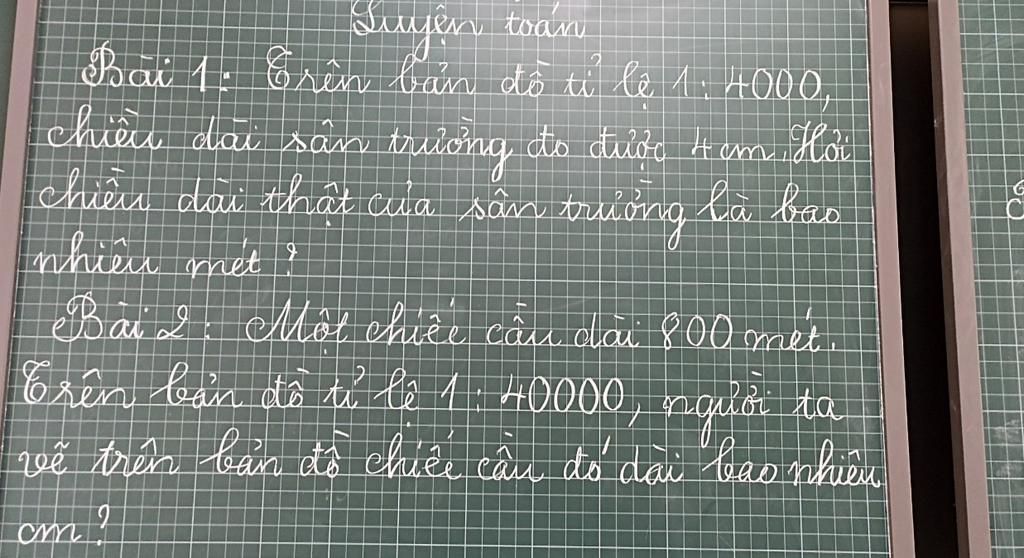 Luyện toán
Bài 1: Trên bản đồ tỉ lệ 1: 4000,
chiều dài sân trường đo được 4 cm. Hỏi
chiều dài thật của sân trường là bao
nhiêu mét?
Bài 2: Một chiếc cầu dài 800 mét.
Trên bản đồ tỉ lệ 1: 40000, người ta
vẽ trên bản đồ chiếc cầu đó dài bao nhiêu
cm?